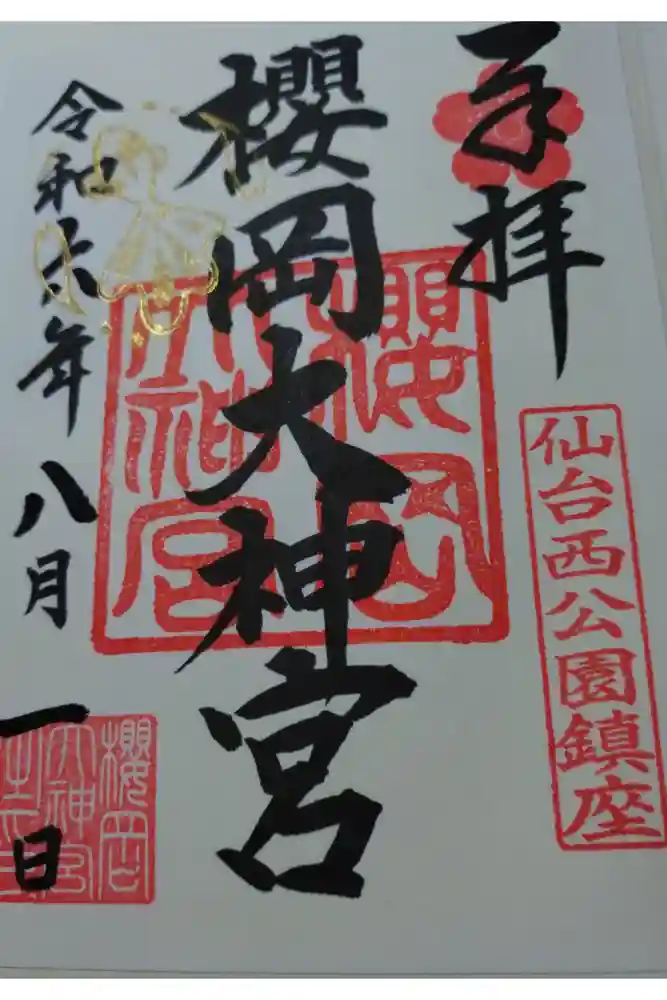 奉拝
仙台西公園鎮座
櫻岡大神宮
櫻岡
大神宮
令和六年八月一日
櫻岡
大神宮